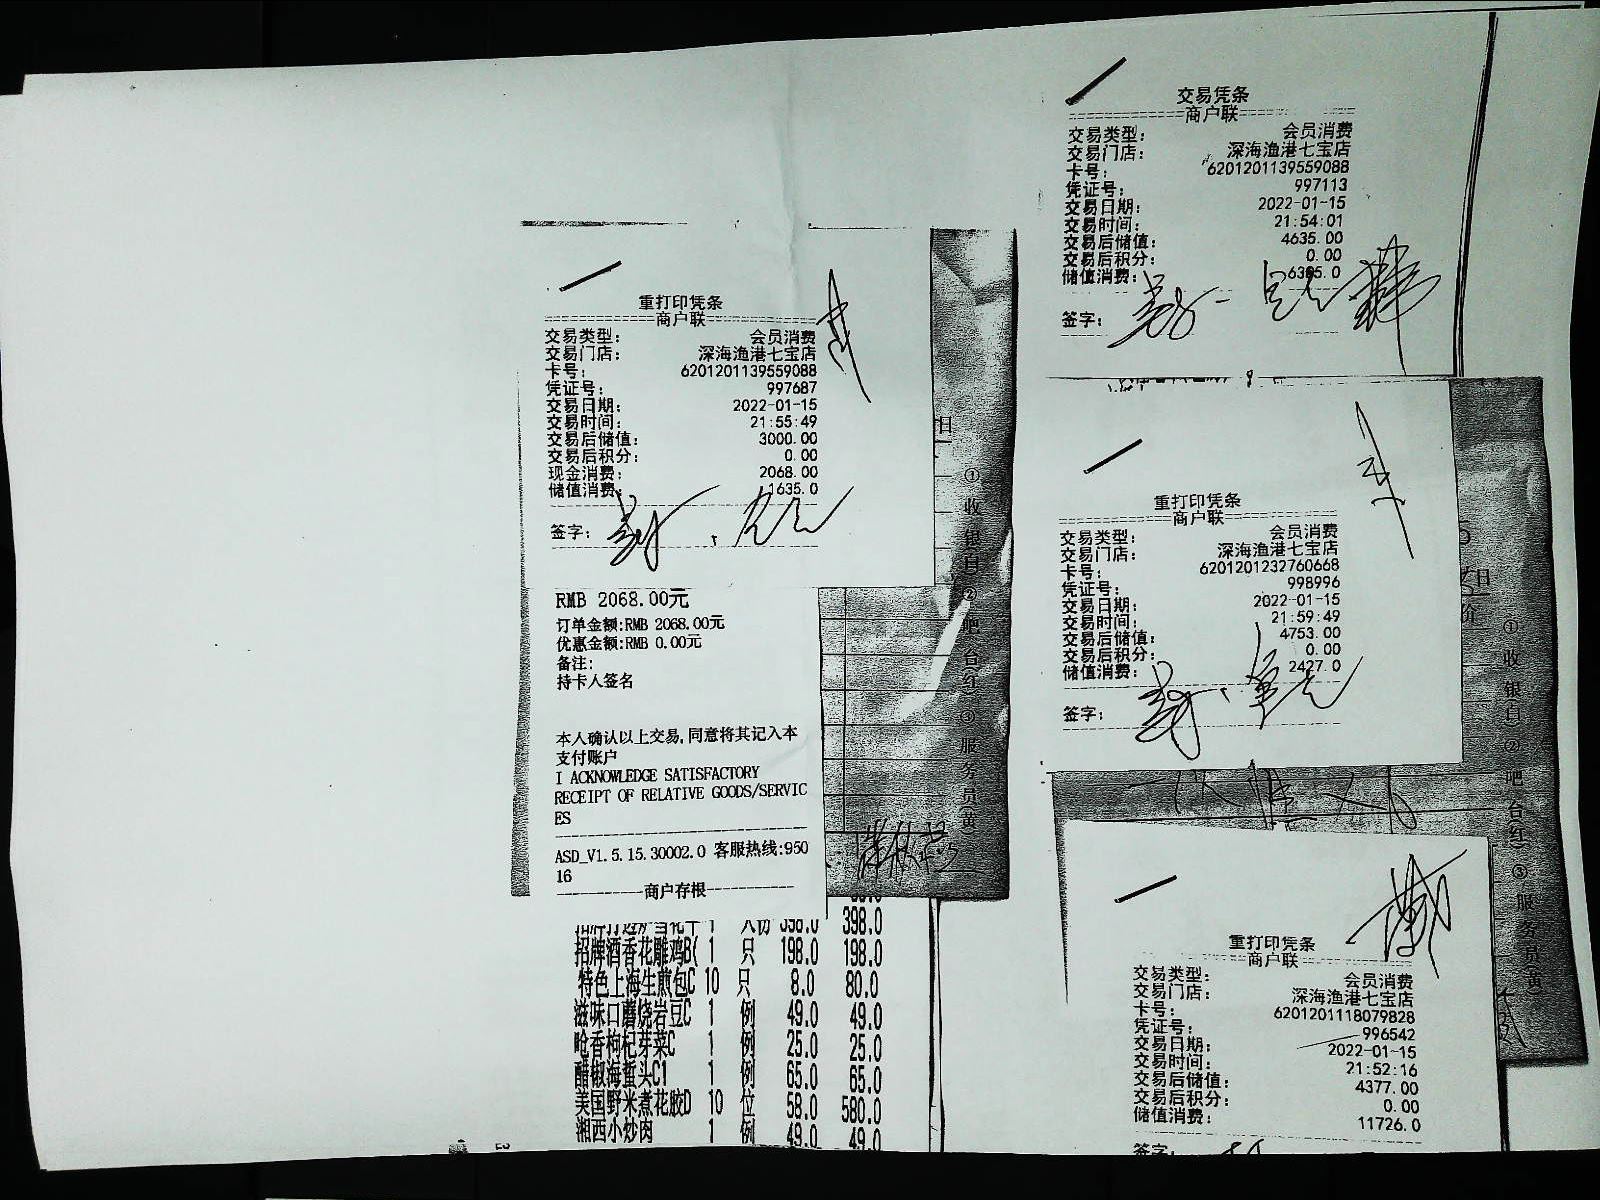 交易凭条
商户联
交易类型: 会员消费
交易门店: 深海渔港七宝店
卡号: 6201201139559088
凭证号: 997113
交易日期: 2022-01-15
交易时间: 21:54:01
交易后储值: 4635.00
交易后积分: 0.00
储值消费: 6365.0
签字:
重打印凭条
商户联
交易类型: 会员消费
交易门店: 深海渔港七宝店
卡号: 6201201139559088
凭证号: 997687
交易日期: 2022-01-15
交易时间: 21:55:49
交易后储值: 3000.00
交易后积分: 0.00
现金消费: 2068.00
储值消费: 1635.0
签字:
日
①收银白②吧台(红)③服务员(黄)
RMB 2068.00元
订单金额:RMB 2068.00元
优惠金额:RMB 0.00元
备注:
持卡人签名
本人确认以上交易,同意将其记入本
支付账户
I ACKNOWLEDGE SATISFACTORY
RECEIPT OF RELATIVE GOODS/SERVIC
ES
ASD_V1.5.15.30002.0 客服热线:950
16
商户存根
1 人份 398.0 398.0
招牌酒香花雕鸡B( 1 只 198.0 198.0
特色上海生煎包C 10 只 8.0 80.0
滋味口蘑烧岩豆C 1 例 49.0 49.0
呛香枸杞芽菜C 1 例 25.0 25.0
醋椒海蜇头C1 1 例 65.0 65.0
美国野米煮花胶D 10 位 58.0 580.0
湘西小炒肉 1 例 49.0 49.0
重打印凭条
商户联
交易类型: 会员消费
交易门店: 深海渔港七宝店
卡号: 6201201232760668
凭证号: 998996
交易日期: 2022-01-15
交易时间: 21:59:49
交易后储值: 4753.00
交易后积分: 0.00
储值消费: 2427.0
签字:
日
①收银白②吧台(红)③服务员(黄)
重打印凭条
商户联
交易类型: 会员消费
交易门店: 深海渔港七宝店
卡号: 6201201118079828
凭证号: 996542
交易日期: 2022-01-15
交易时间: 21:52:16
交易后储值: 4377.00
交易后积分: 0.00
储值消费: 11726.0
签字: